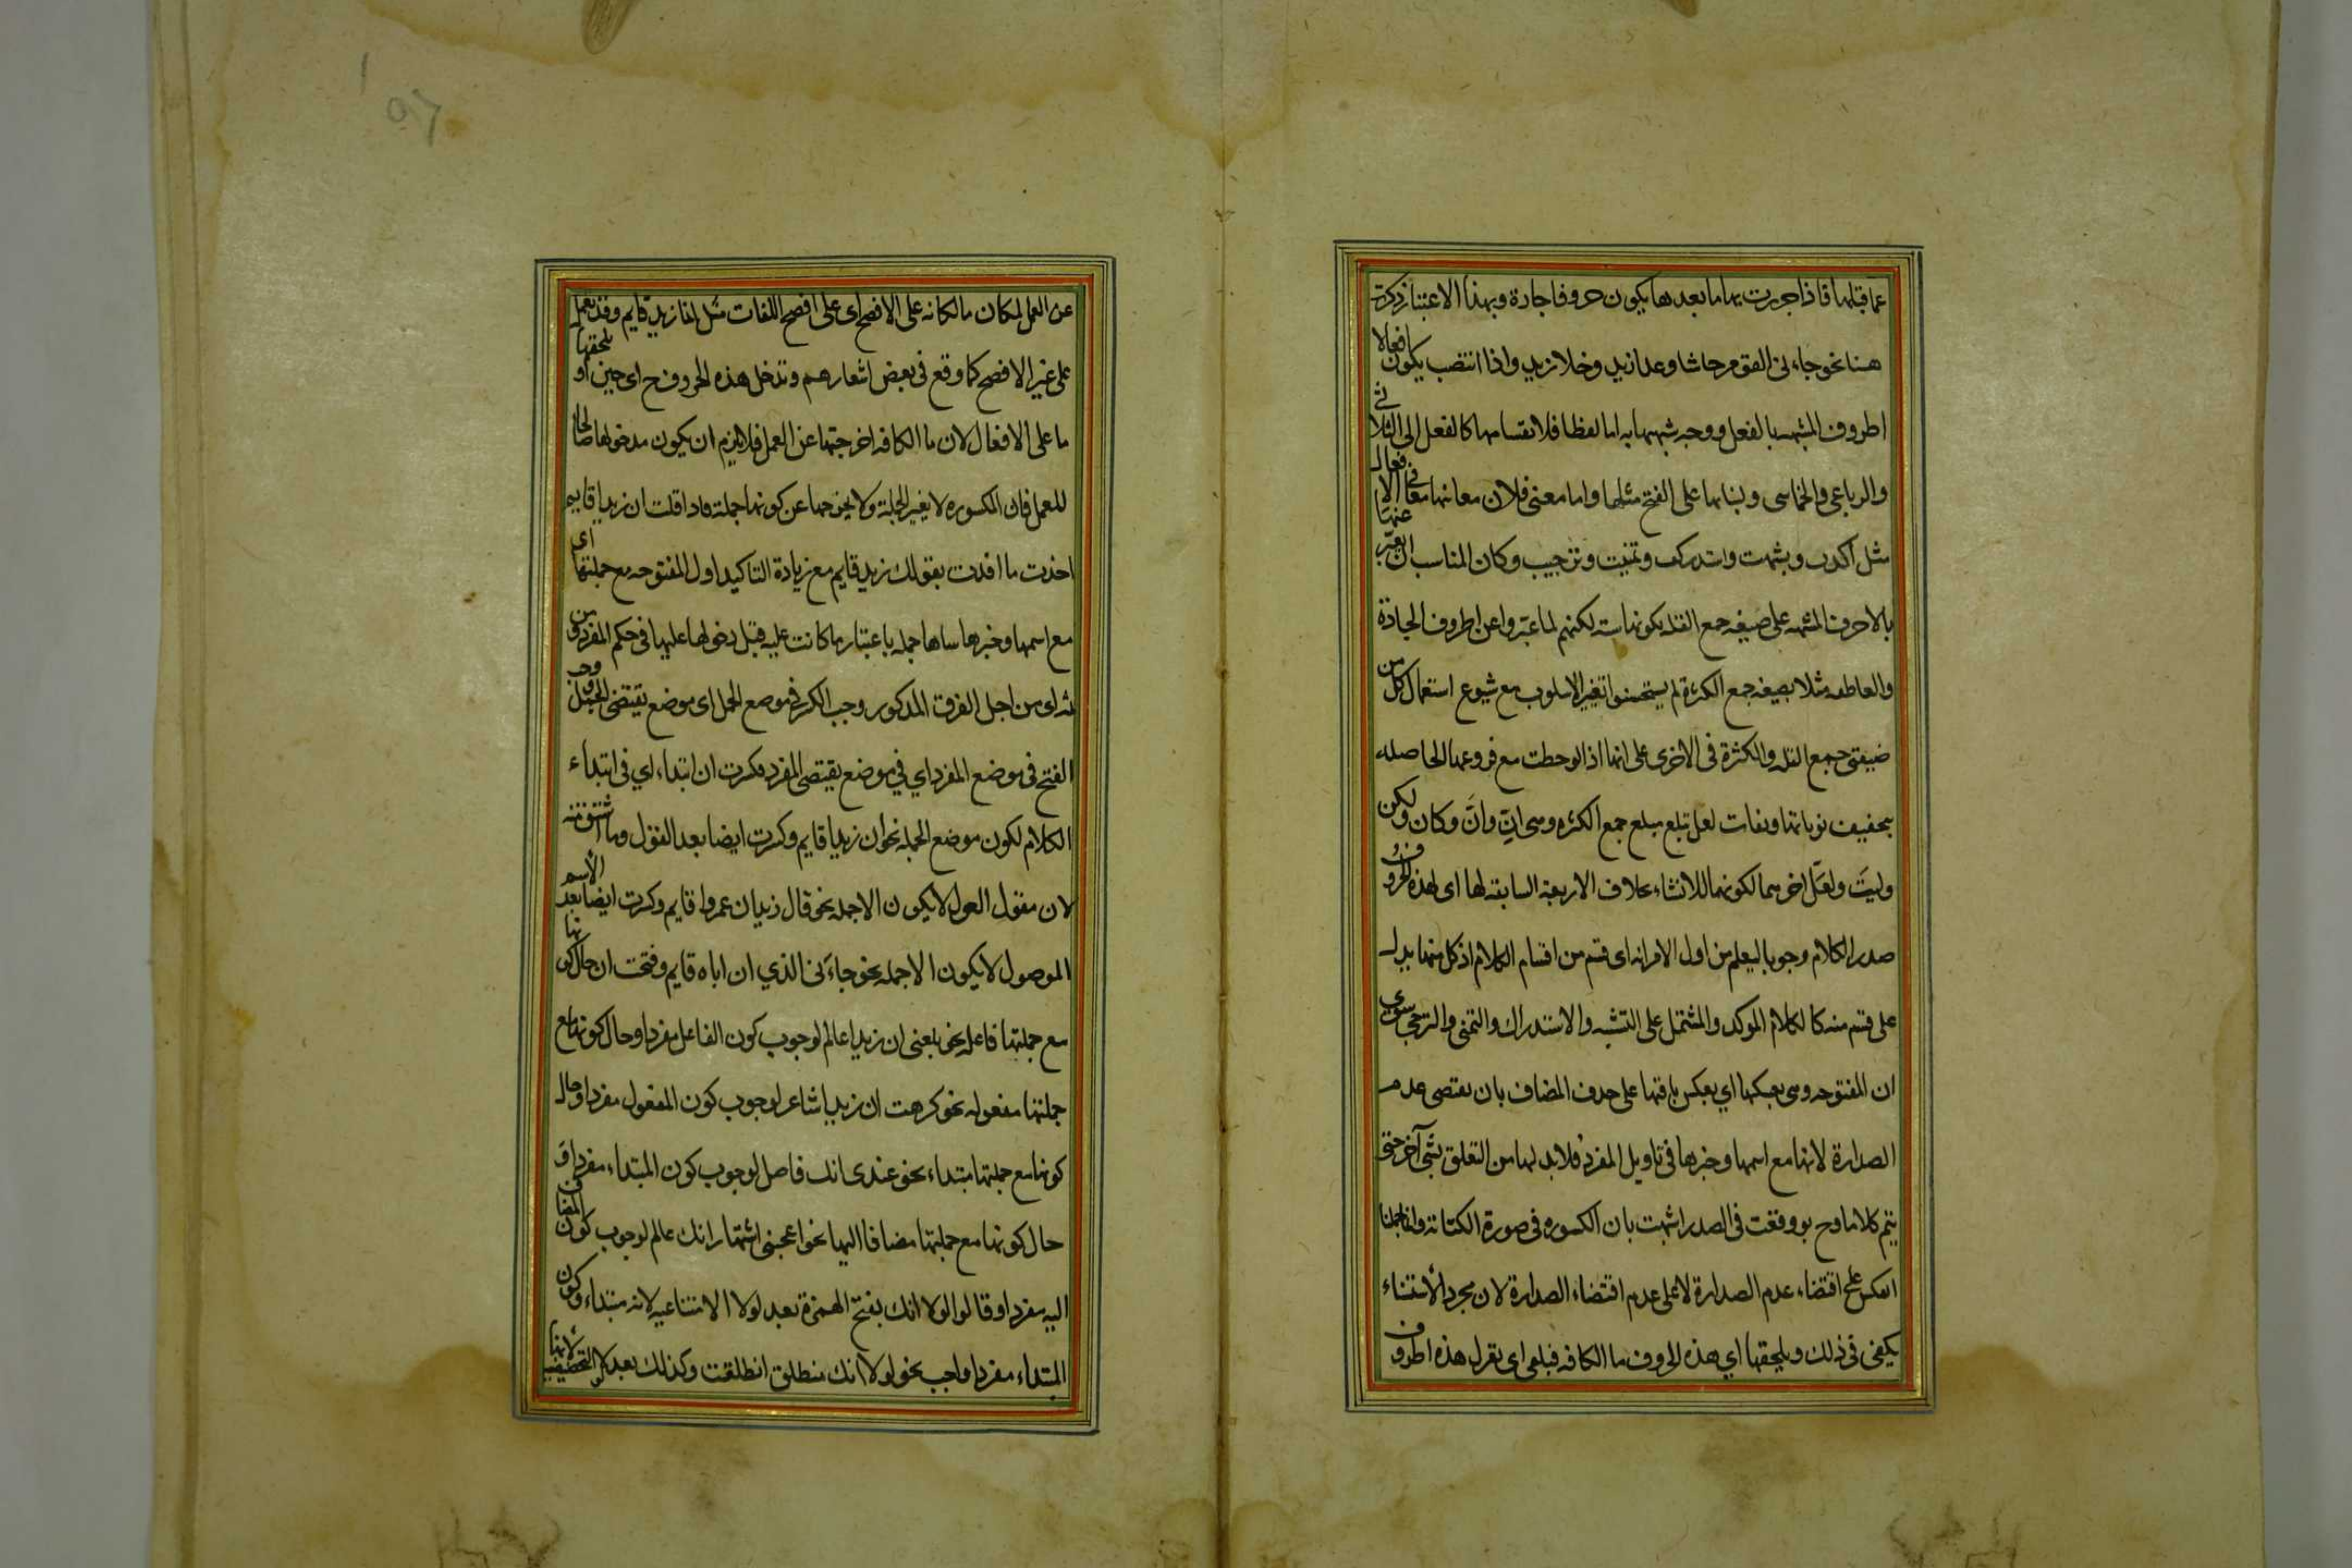 عما قبلها فاذا جررت بها ما بعدها يكون حروفا جارة وبهذا الاعتبار ذكرت
هنا نحو جاءنى القوم حاشا وعدا زيد وخلا زيد واذا انتصب يكون افعالا
الحروف المشبهه بالفعل ووجه شبهها به اما لفظا فلانقسامها كالفعل الى الثلاثى
والرباعى والخماسى وبنائها على الفتح مثلها واما معنى فلان معانيها معانى الافعال
مثل اكدت وشبهت واستدركت وتمنيت وترجيت وكان المناسب ان يعبّر عنها
بالاحرف المشبهه على صيغه جمع القله لكونها سته لكنهم لما عبّروا عن الحروف الجارة
والعاطفه مثلا بصيغه جمع الكثرة لم يستحسنوا تغير الاسلوب مع شيوع استعمال كل من
صيغتى جمع القله والكثرة فى الاخرى على انها اذا لوحظت مع فروعها الحاصله
بتخفيف نوناتها ولغات لعل تبلغ مبلغ جمع الكثره وهى انّ وانّ وكان ولكن
وليت ولعلّ اخرهما لكونهما للانشاء بخلاف الاربعة السابقه لها اى لهذه الحروف
صدر الكلام وجوبا ليعلم من اول الامر انه اى قسم من اقسام الكلام اذ كل منها يدل
على قسم منه كالكلام الموكد والمشتمل على التشبيه والاستدراك والتمنى والترجى سوى
ان المفتوحه وهى بعكسها اي بعكس باقيها على حذف المضاف بان يقتضى عدم
الصدارة لانها مع اسمها وخبرها فى تاويل المفرد فلا بد لها من التعلق بشئ آخر حتى
يتم كلاما وح لو وقعت فى الصدر اشبهت بان المكسوره فى صورة الكتابة وانما حملنا
العكس على اقتضاء عدم الصدارة لا على عدم اقتضاء الصدارة لان مجرد الاستثناء
يكفى فى ذلك ويلحقها اي هذه الحروف ما الكافه فيلغى اى يعزل هذه الحروف
عن العمل لمكان ما الكافه على الافصح اى على افصح اللغات مثل انما زيد قايم وقد يعمل
على غير الافصح كما وقع فى بعض اشعارهم وتدخل هذه الحروف ح اى حين اذ يلحقها
ما على الافعال لان ما الكافه اخرجتها عن العمل فلا يلزم ان يكون مدخولها صالحا
للعمل فان المكسوره لا يغير الجملة ولا يخرجها عن كونها جملة فاذا قلت ان زيدا قايم
اخذت ما افدت بقولك زيد قايم مع زيادة التاكيد اول المفتوحه مع جملتها اى
مع اسمها وخبرها سماها جمله باعتبار ما كانت عليه قبل دخولها عليها فى حكم المفرد ومن
ثم اى من اجل الفرق المذكور وجب الكسر فى موضع الجمل اى موضع يقتضى الجمل ووجب
الفتح فى موضع المفرد اي فى موضع يقتضى المفرد فكسرت ان ابتداء اي فى ابتداء
الكلام لكون موضع الجمله نحو ان زيدا قايم وكسرت ايضا بعد القول وما اشتق منه
لان مقول القول لا يكون الا جمله نحو قال زيد ان عمروا قايم وكسرت ايضا بعد الاسم
الموصول لا يكون الا جمله نحو جاءنى الذي ان اباه قايم وفتحت ان حال كونها
مع جملتها فاعله نحو بلغنى ان زيدا عالم لوجوب كون الفاعل مفردا وحال كونها مع
جملتها مفعوله نحو كرهت ان زيدا شاعر لوجوب كون المفعول مفردا وحال
كونها مع جملتها مبتداء نحو عندى انك فاضل لوجوب كون المبتداء مفردا و
حال كونها مع جملتها مضافا اليها نحو اعجبنى اشتهار انك عالم لوجوب كون المضاف
اليه مفردا وقالوا لولا انك بفتح الهمزة بعد لولا الامتناعيه لانه مبتداء وكون
المبتداء مفردا واجب نحو لولا انك منطلق انطلقت وكذلك بعد لولا التحضيضيه لانها